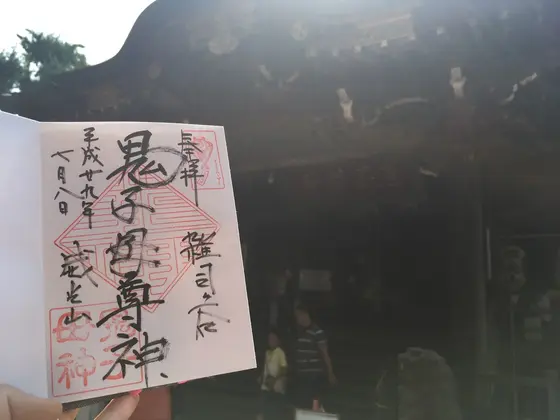 奉拝
雑司ヶ谷
鬼子母尊神
平成廿九年
七月八日
威光山